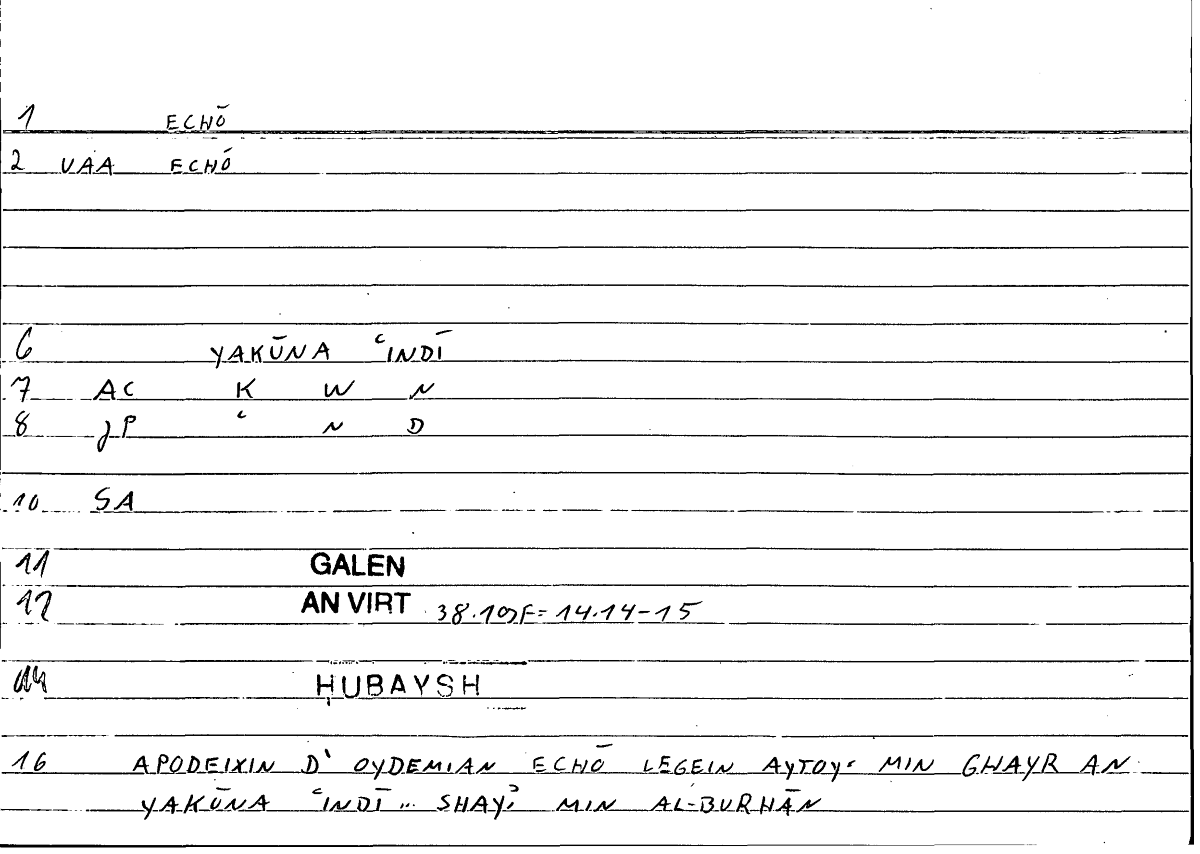 1 ECHŌ
2 VAA ECHŌ
6 YAKŪNA ʿINDĪ
7 AC K W N
8 JP ʿ N D
10 SA
11 GALEN
12 AN VIRT 38.19F=14.14-15
14 ḤUBAYSH
16 APODEIXIN D' OYDEMIAN ECHŌ LEGEIN AYTOY: MIN GHAYR AN
YAKŪNA ʿINDĪ... SHAYʾ MIN AL-BURHĀN